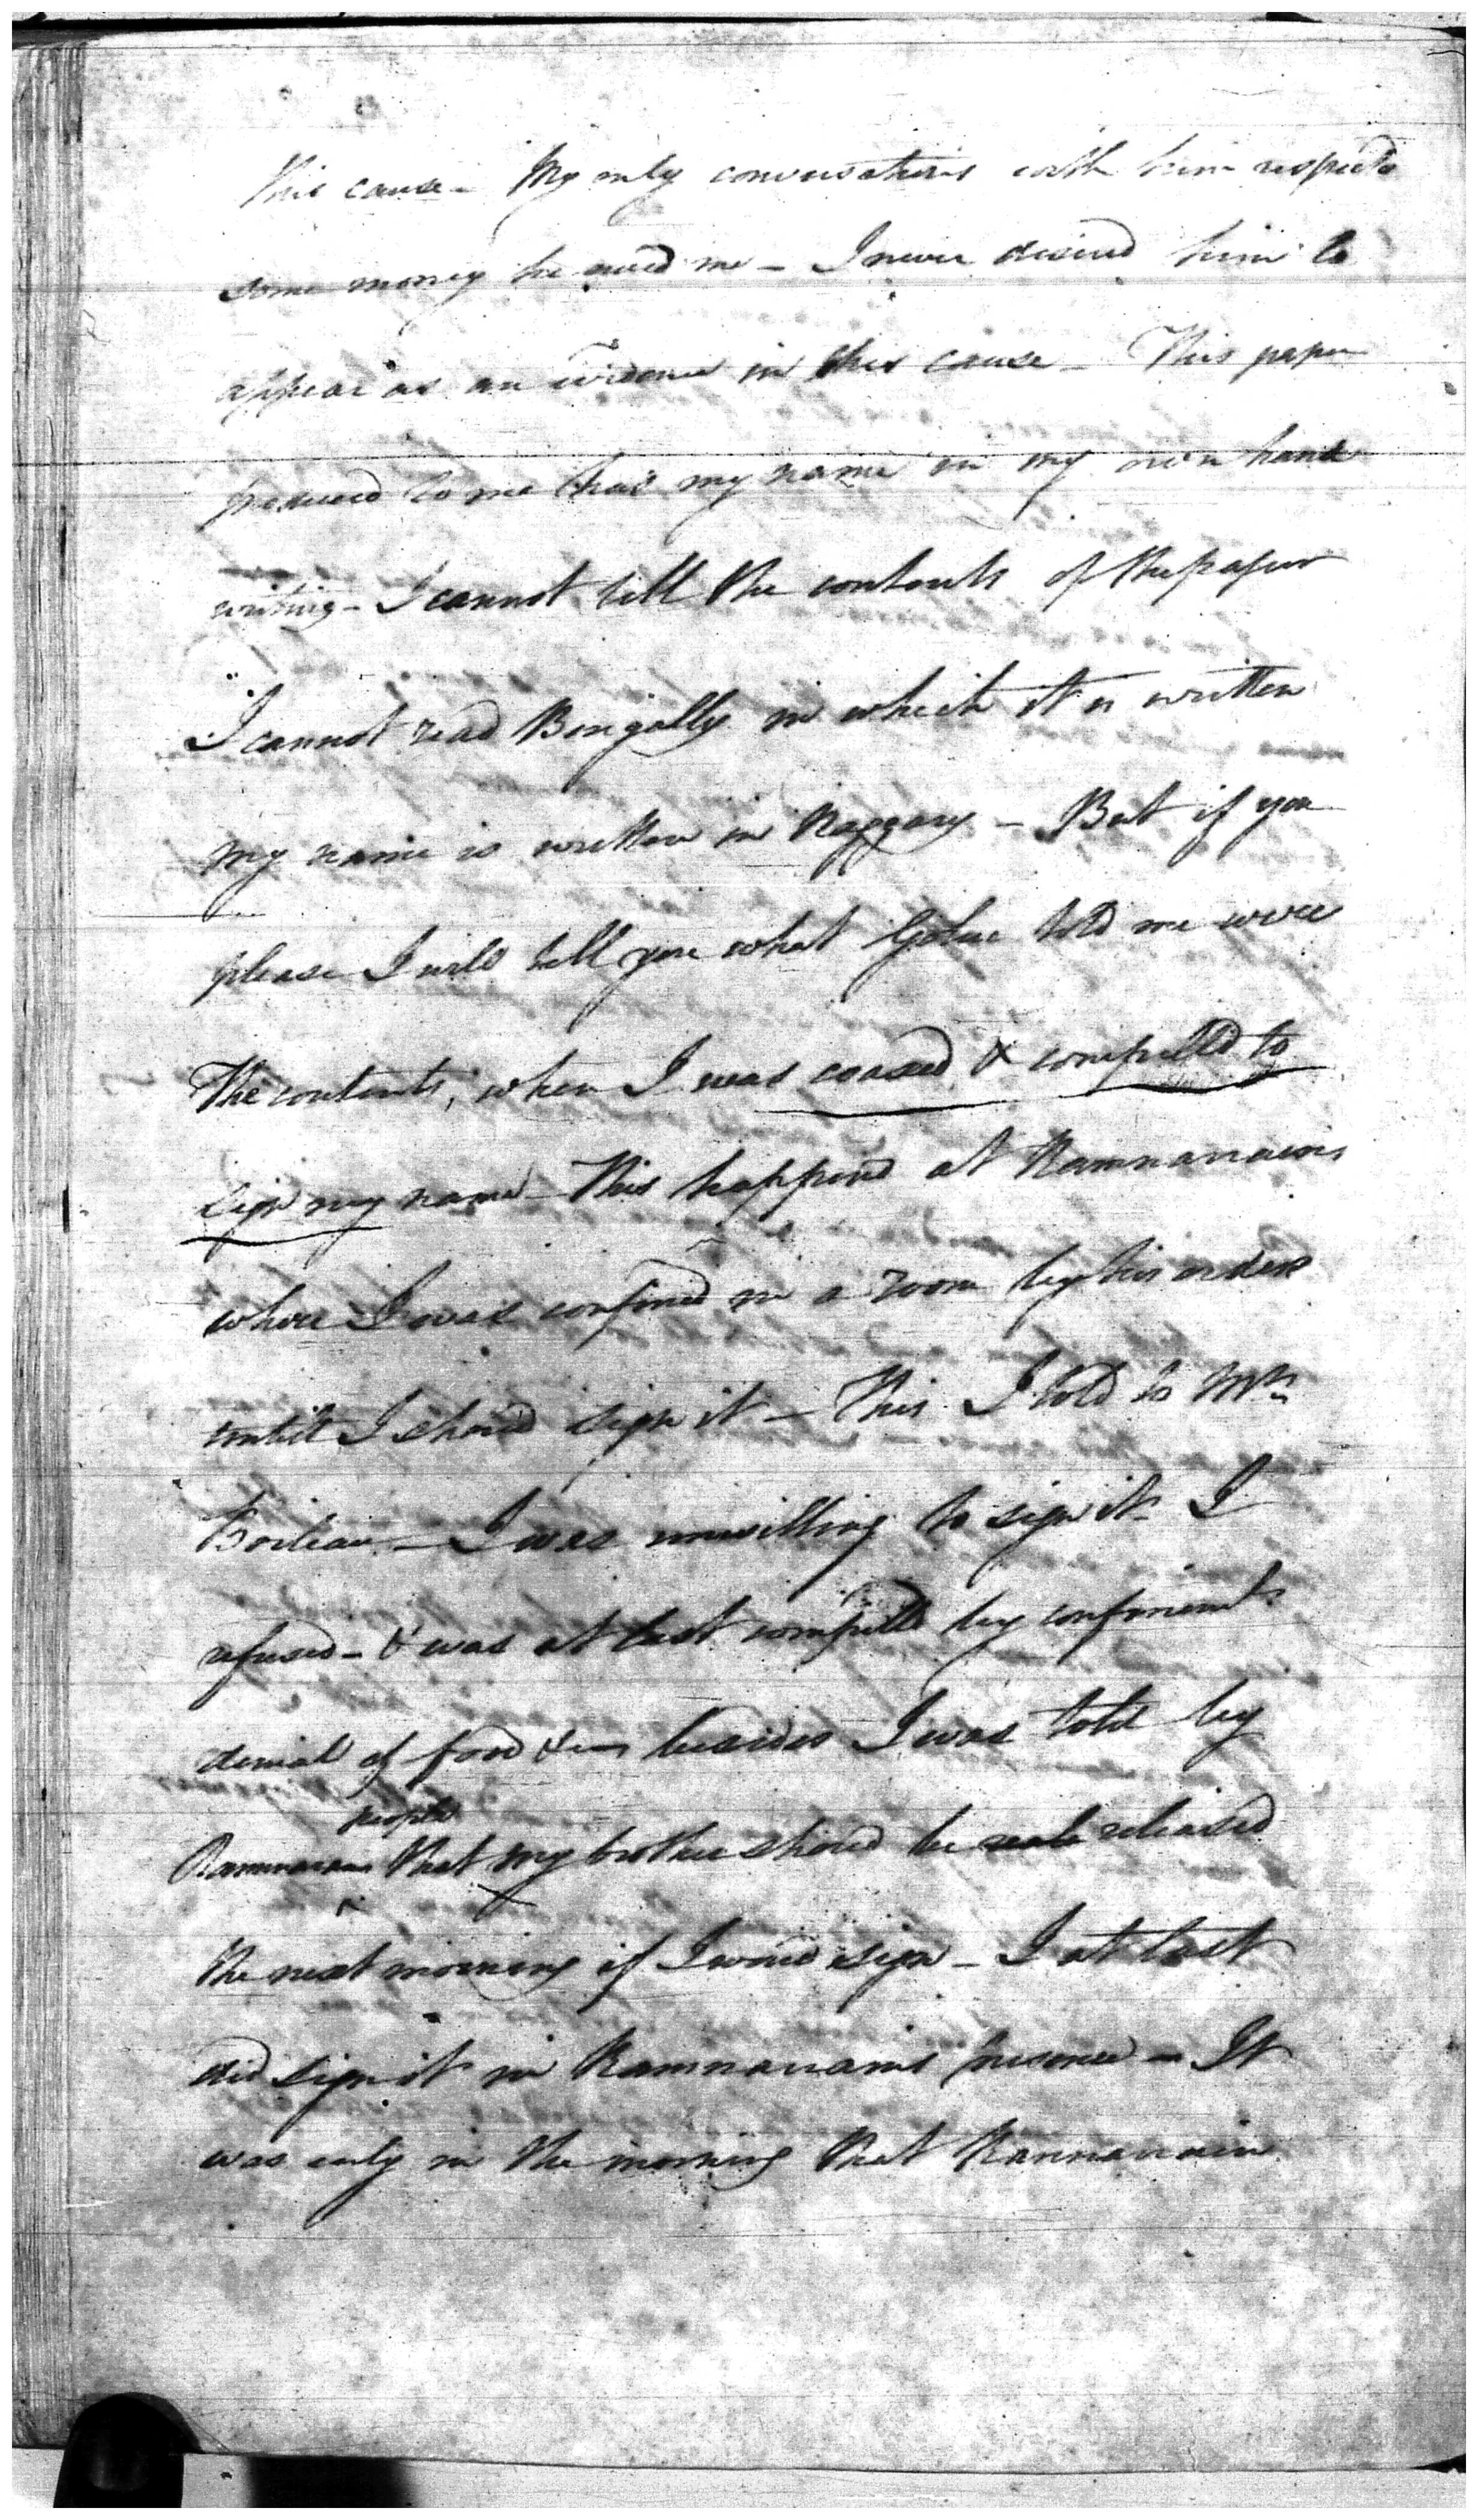 this cause – My only conversations with him respects
some money he owed me – I never desired him to
appear as an evidence in this cause – This paper
produced to me has my name in my own hand
writing – I cannot tell the contents of the paper
I cannot read Bengally in which it is written
my name is written in Naggary – But if you
please I will tell you what told me were
the contents, when I was coaxed & compelled to
sign my name – This happened at Ramnarains
where I was confined in a room by his orders
until I should sign it – This I told to Mr
Boileau – I was unwilling to sign it – I
refused – & was at last compelled by confinemt
denial of food &c besides I was told by
people
Ramnarain that my brother should be released
the next morning if I would sign – I at last
did sign it in Ramnarains presence – It
was early in the morning that Ramnarain